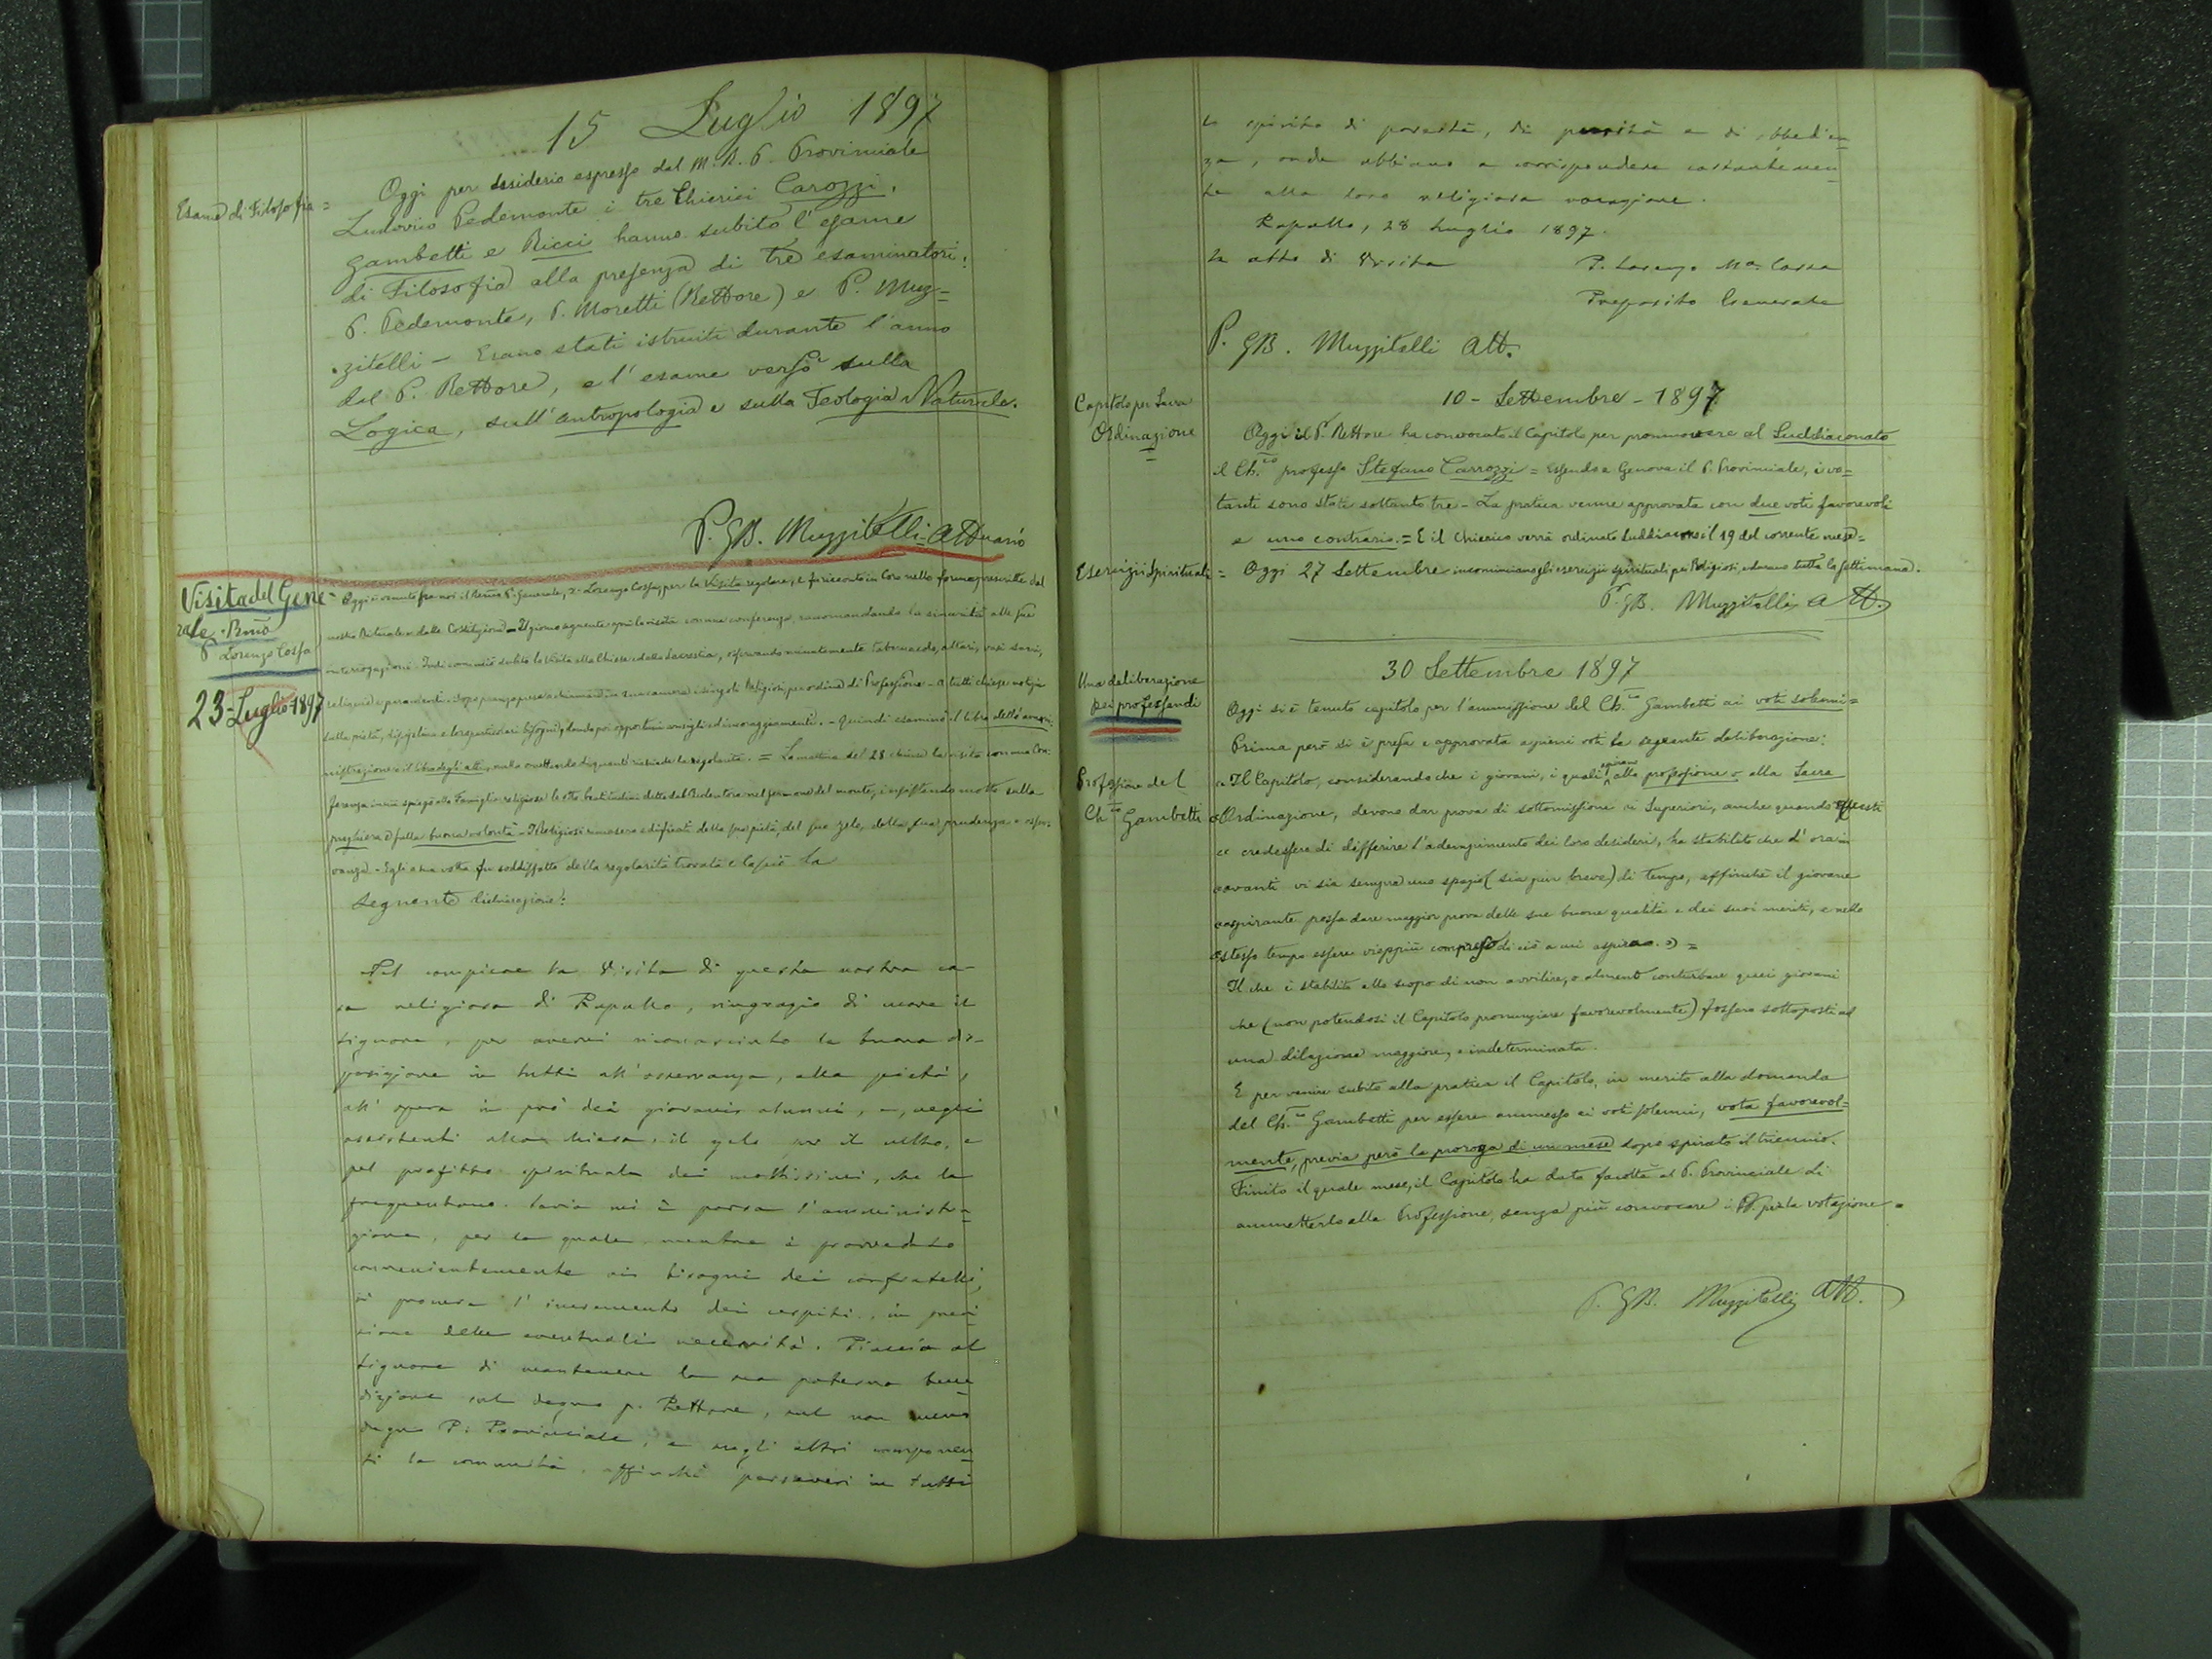 15 Luglio 1897
Esame di Filosofia =
Oggi per desiderio espresso dal M. R. P. Provinciale
Ludovico Pedemonte i tre Chierici Carozzi,
Gambetti e Ricci hanno subito l'esame
di Filosofia alla presenza di tre esaminatori:
P. Pedemonte, P. Moretti (Rettore) e P. Muz=
zitelli - Erano stati istruiti durante l'anno
dal P. Rettore, e l'esame versò sulla
Logica, sull'Antropologia e sulla Teologia Naturale.
P. GB. Muzzitelli Attuario
Visita del Gene-
rale Rmo
P. Lorenzo Cossa
23-Luglio-1897
Oggi è venuto fra noi il Rmo P. Generale, D. Lorenzo Cossa, per la Visita regolare, e fu ricevuto in Coro nelle forme prescritte dal
nostro Rituale e dalle Costituzioni - Il giorno seguente aprì la visita con una conferenza, raccomandando la sincerità alle sue
interrogazioni. Indi cominciò subito la visita alla Chiesa e dalla Sacrestia, osservando minutamente tabernacolo, altari, vasi sacri,
reliquie e paramenti. Dopo pranzo prese a chiamare in sua camera i singoli Religiosi, per ordine di Professione - a tutti chiese notizie
sulla pietà, disciplina e loro particolari bisogni, dando poi opportuni consigli ed incoraggiamenti. - Quindi esaminò il libro dell'ammi-
nistrazione e il libro degli atti, nulla omettendo di quanto richiede la regolarità. = La mattina del 28 chiuse la visita con una Con-
ferenza in cui spiegò alla Famiglia religiosa le otto beatitudini dette dal Redentore nel sermone del monte, insistendo molto sulla
preghiera e sulla buona volontà - I Religiosi rimasero edificati della sua pietà, del suo zelo, della sua prudenza e osser-
vanza. - Egli a sua volta fu soddisfatto della regolarità trovata e lasciò la
seguente dichiarazione:
Nel compiere la Visita di questa nostra ca-
sa religiosa di Rapallo, ringrazio di cuore il
Signore, per avervi riconosciuto la buona di-
sposizione in tutti all'osservanza, alla pietà,
all'opera in prò dei giovani alunni, e, negli
assistenti alla Chiesa, il zelo per il culto, e
pel profitto spirituale dei moltissimi, che la
frequentano. Savia mi è parsa l'amministra-
zione, per la quale, mentre è provveduto
convenientemente ai bisogni dei confratelli,
si procura l'incremento dei cespiti, in previ-
sione delle eventuali necessità. Piaccia al
Signore di mantenere la sua paterna bene-
dizione sul degno p. Rettore, sul non meno
degno P. Provinciale, e sugli altri componen-
ti la comunità, affinché perseveri in tutti
lo spirito di povertà, di purità e di obbedien-
za, onde abbiano a corrispondere costantemen-
te alla loro religiosa vocazione.
Rapallo, 28 Luglio 1897.
In atto di Visita P. Lorenzo Ma Cossa
Preposito Generale
P. GB. Muzzitelli Att.
10 - Settembre - 1897
Capitolo per Sacra
Ordinazione
Oggi il P. Rettore ha convocato il Capitolo per promuovere al Suddiaconato
il Ch.co professo Stefano Carrozzi = Essendo a Genova il P. Provinciale, i vo=
tanti sono stati soltanto tre - La pratica venne approvata con due voti favorevoli
e uno contrario. = E il Chierico verrà ordinato Suddiacono il 19 del corrente mese =
Esercizii Spirituali = Oggi 27 Settembre incominciano gli esercizii spirituali pei Religiosi, e durano tutta la settimana.
P. GB. Muzzitelli Att.
30 Settembre 1897
Una deliberazione
pei professandi
Oggi si è tenuto capitolo per l'ammissione del Ch.co Gambetti ai voti solenni =
Prima però si è presa e approvata a pieni voti la seguente deliberazione:
Professione del
Ch.co Gambetti
« Il Capitolo, considerando che i giovani, i quali aspirano alla professione o alla Sacra
« Ordinazione, devono dar prova di sottomissione ai Superiori, anche quando questi
« credessero di differire l'adempimento dei loro desideri, ha stabilito che d'ora in
« avanti vi sia sempre uno spazio (sia pur breve) di tempo, affinché il giovane
« aspirante possa dare maggior prova delle sue buone qualità e dei suoi meriti, e nello
« stesso tempo essere viappiù compreso di ciò a cui aspira. » =
Il che è stabilito allo scopo di non avvilire, o almeno conturbare quei giovani
che (non potendosi il Capitolo pronunziare favorevolmente) fossero sottoposti ad
una dilazione maggiore, e indeterminata.
E per venire subito alla pratica il Capitolo, in merito alla domanda
del Ch.co Gambetti per essere ammesso ai voti solenni, vota favorevol=
mente, previa però la proroga di un mese dopo spirato il triennio.
Finito il quale mese, il Capitolo ha dato facoltà al P. Provinciale di
ammetterlo alla Professione, senza più convocare i PP. per la votazione =
P. GB. Muzzitelli Att.